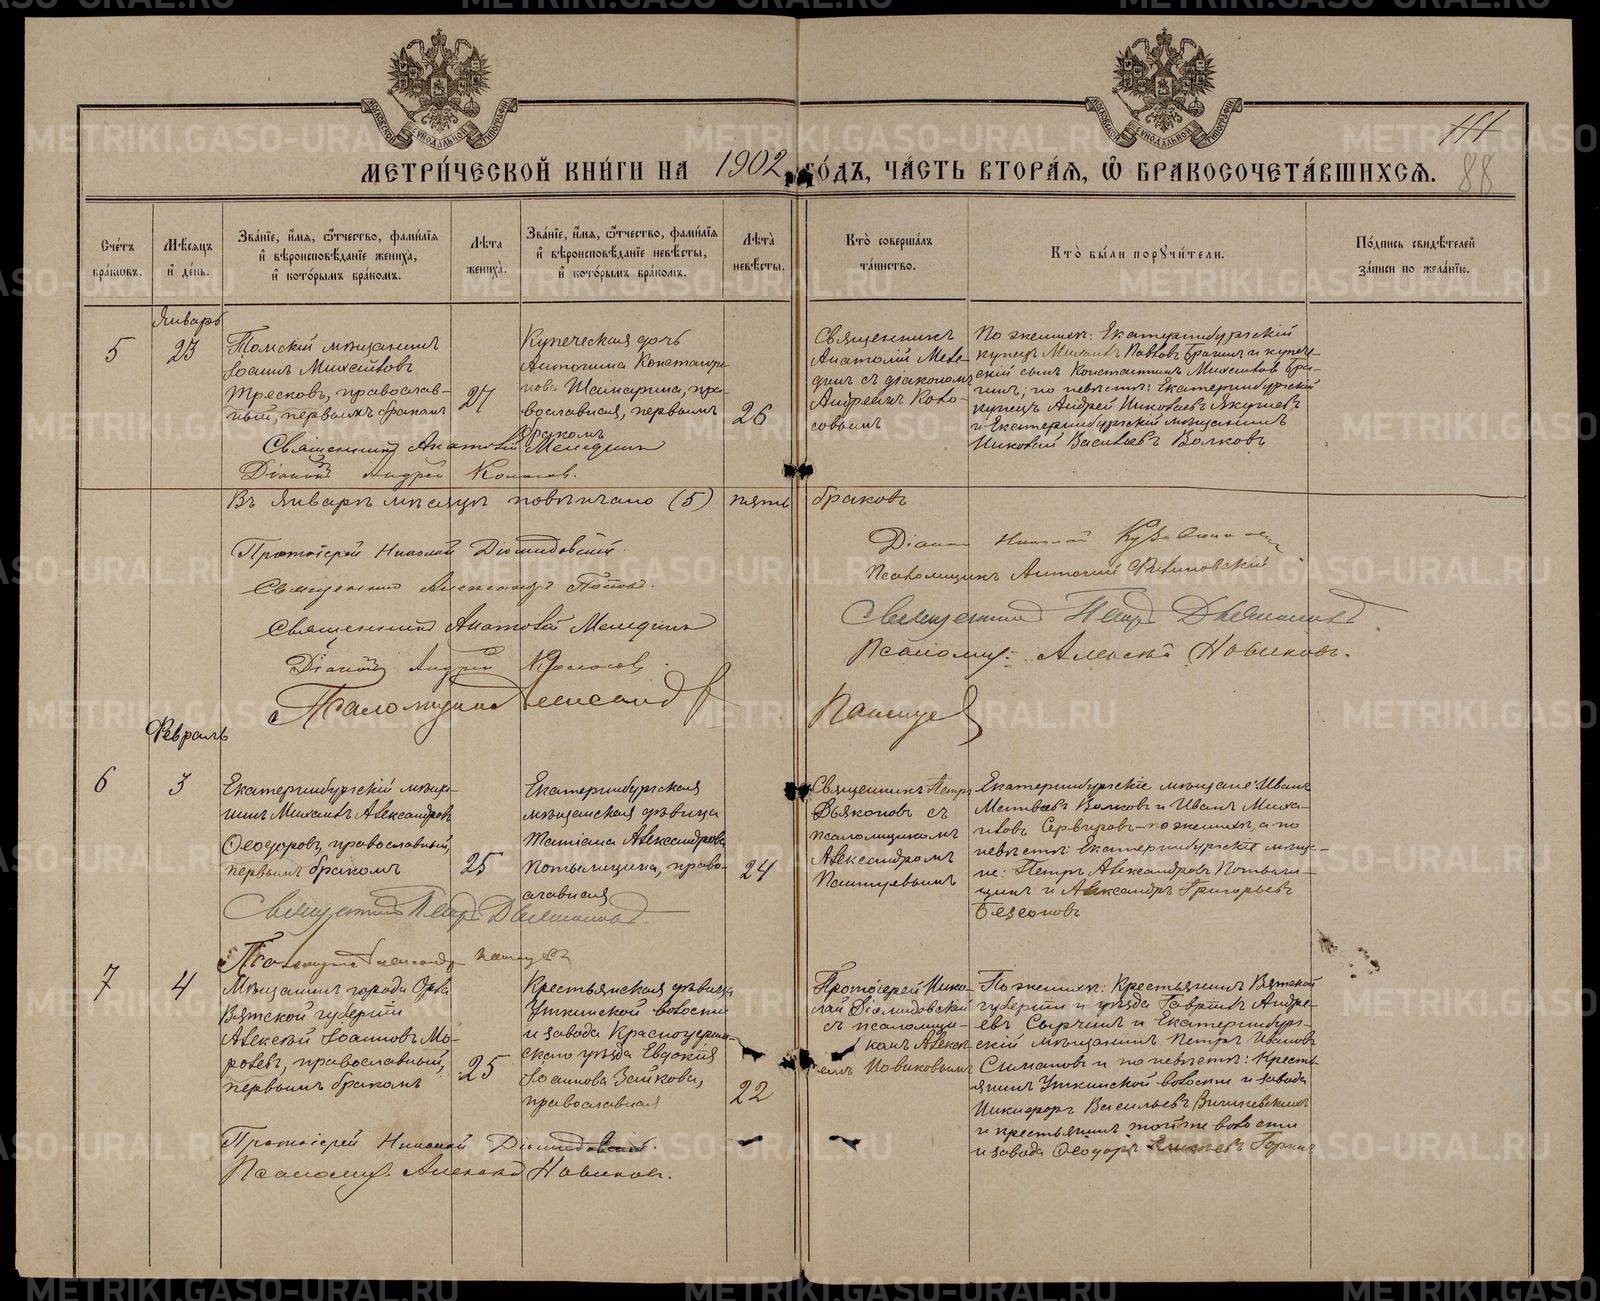 МОСКОВСКОЙ СѴНОДАЛЬНОЙ ТИПОГРАФІИ
МОСКОВСКОЙ СѴНОДАЛЬНОЙ ТИПОГРАФІИ
111
88
МЕТРИ́ЧЕСКОЙ КНИ́ГИ НА 1902 ГО́ДЪ, ЧА́СТЬ ВТОРА́Я, Ѽ БРАКОСОЧЕТА́ВШИХСЯ.
Сче́тъ бра́ковъ.
Мѣ́сяцъ и҆ де́нь.
Зва́нїе, и҆́мя, ѻ҆́тчество, фами́лїя и҆ вѣроисповѣ́данїе жениха̀, и҆ кото́рымъ бра́комъ.
Лѣ́та жениха̀.
Зва́нїе, и҆́мя, ѻ҆́тчество, фами́лїя и҆ вѣроисповѣ́данїе невѣ́сты, и҆ кото́рымъ бра́комъ.
Лѣ́та невѣ́сты.
Кто̀ соверша́лъ та́инство.
Кто̀ бы́ли порꙋчи́тели.
По́дпись свидѣ́телей за́писи по жела́нїю.
Январь
5
23
Томскій мѣщанинъ
Іоаннъ Михайловъ
Тресковъ, православ-
ный, первымъ бракомъ
27
Купеческая дочь
Антонина Константи-
нова Шамарина, пра-
вославная, первымъ
бракомъ
26
Священникъ
Анатолій Меле-
динъ съ діакономъ
Андреемъ Коло-
совымъ
По женихѣ: Екатеринбургскій
купецъ Михаилъ Павловъ Брагинъ и купече-
скій сынъ Константинъ Михайловъ Бра-
гинъ; по невѣстѣ: Екатеринбургскій
купецъ Андрей Николаевъ Якушевъ
и Екатеринбургскій мѣщанинъ
Николай Васильевъ Волковъ
Священникъ Анатолій Мелединъ
Діаконъ Андрей Колосовъ.
Въ Январѣ мѣсяцѣ повѣнчано (5) пять браковъ
Протоіерей Николай Діомидовскій.
Священникъ Александръ Поповъ.
Священникъ Анатолій Мелединъ
Діаконъ Андрей Колосовъ.
Псаломщикъ Александръ Пантуевъ
Діаконъ Николай
Псаломщикъ Антоній Филиповскій
Священникъ Петръ Дьяконовъ.
Псаломщ: Алексѣй Новиковъ.
Февраль
6
3
Екатеринбургскій мѣща-
нинъ Михаилъ Александровъ
Ѳеодоровъ, православный,
первымъ бракомъ
25
Екатеринбургская
мѣщанская дѣвица
Татіана Александрова
Потылицина, право-
славная
24
Священникъ Петръ
Дьяконовъ съ
псаломщикомъ
Александромъ
Пантуевымъ
Екатеринбургскіе мѣщане: Иванъ
Матвѣевъ Волковъ и Иванъ Михай-
ловъ Серв​ировъ - по женихѣ, а по
невѣстѣ: Екатеринбургскіе мѣща-
не: Петръ Александровъ Потыли-
цинъ и Александръ Григорьевъ
Безсоновъ
Священникъ Петръ Дьяконовъ.
Псаломщикъ Александръ Пантуевъ
7
4
Мѣщанинъ города Орлова
Вятской губерніи
Алексѣй Іоанновъ Мо-
ролевъ, православный,
первымъ бракомъ
25
Крестьянская дѣвица
Уткинской волости
и завода Красноуфим-
скаго уѣзда Евдокія
Іоаннова Зайкова,
православная
22
Протоіерей Нико-
лай Діомидовскій
съ псаломщи-
комъ Алексѣ-
емъ Новиковымъ
По женихѣ: Крестьянинъ Вятской
губерніи и уѣзда Гавріилъ Андре-
евъ Сырчинъ и Екатеринбург-
скій мѣщанинъ Петръ Ивановъ
Симановъ и по невѣстѣ: Кресть-
янинъ Уткинской волости и завода
Никифоръ Васильевъ
и крестьянинъ той же волости
и завода Ѳеодоръ
Протоіерей Николай Діомидовскій.
Псаломщ. Алексѣй Новиковъ.
METRIKI.GASO-URAL.RU